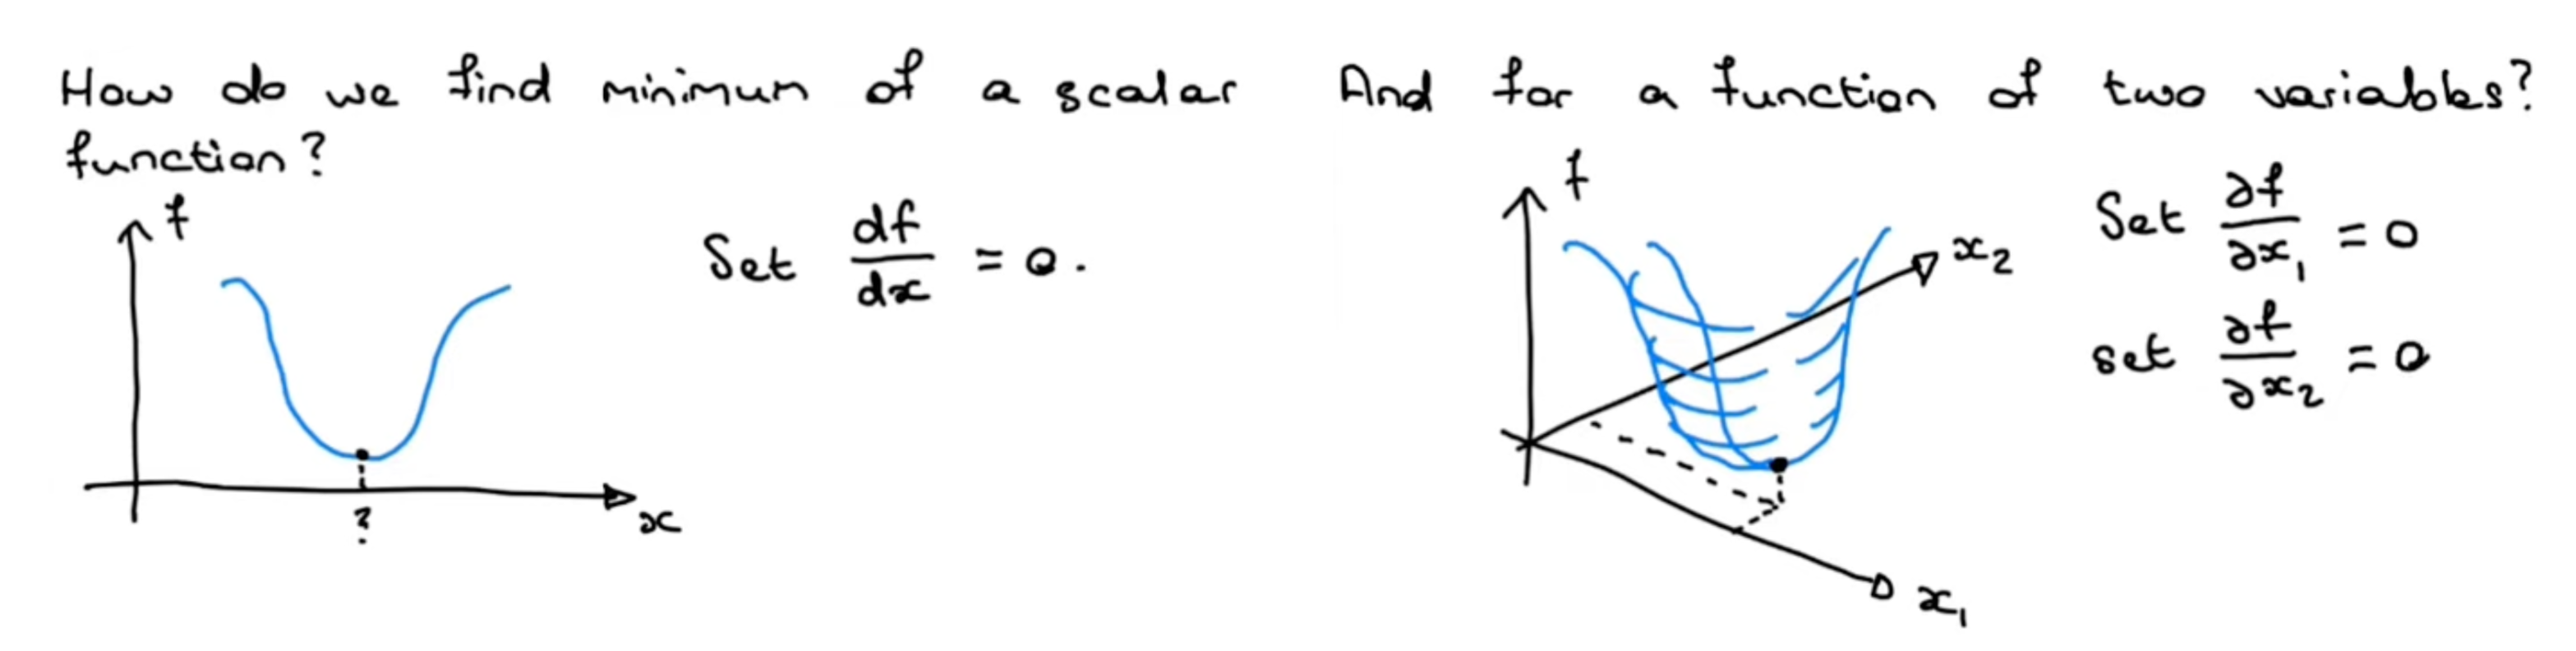 How do we find minimum of a scalar
function?
f
Set df/dx = 0.
?
x
And for a function of two variables?
f
x₂
Set ∂f/∂x₁ = 0
set ∂f/∂x₂ = 0
x₁